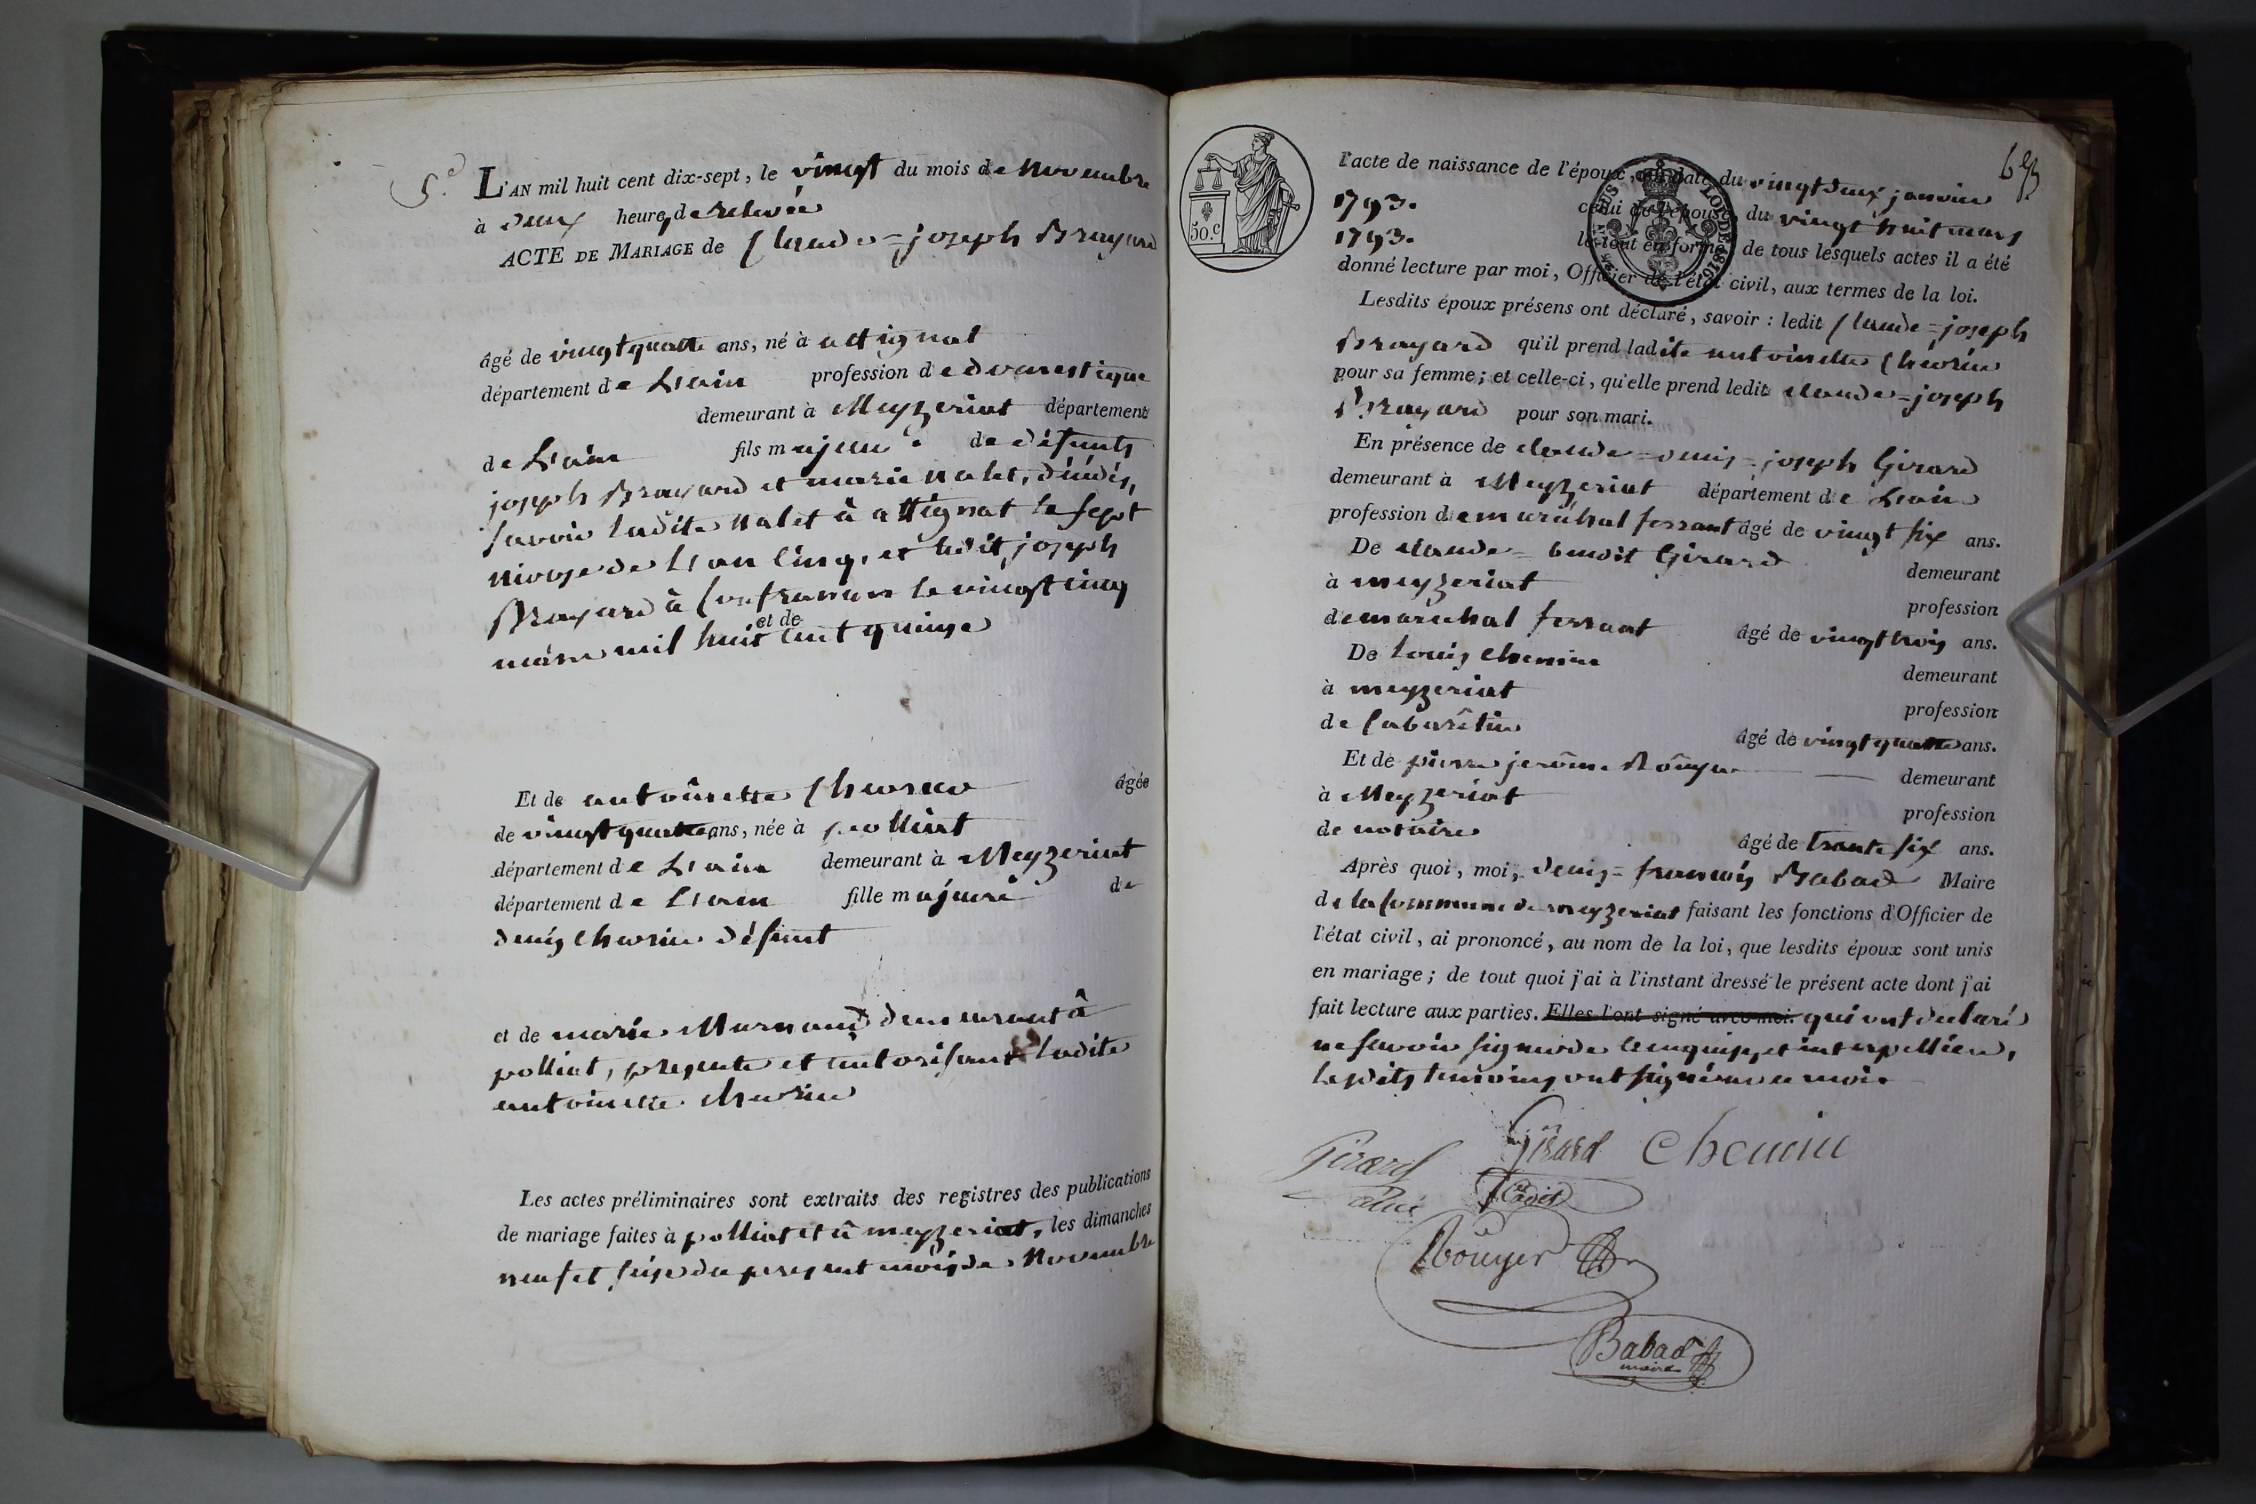 5.e L'AN mil huit cent dix-sept, le vingt du mois de Novembre
à deux heures de relevée
ACTE DE MARIAGE de Claude=joseph Brayard
âgé de vingt quatre ans, né à attignat
département de L'ain profession de domestique
demeurant à Meyzeriat département
de L'ain fils majeur de défunts
joseph Brayard et marie Nalet, décédés,
savoir ladite Nalet à attignat le sept
nivose de L'an cinq, et ledit joseph
Brayard à Confrançon le vingt cinq
et de
mars mil huit cent quinze
Et de antoinette Cheorin âgée
de vingt quatre ans, née à polliat
département de L'ain demeurant à Meyzeriat
département de L'ain fille majeure de
denis Cheorin défunt
et de marie demeurant à
polliat, presente et autorisant ladite
antoinette Cheorin
Les actes préliminaires sont extraits des registres des publications
de mariage faites à polliat et à meyzeriat, les dimanches
neuf et seize du present mois de Novembre
65
50.c
TIMBRE LOI DE 1816
l'acte de naissance de l'époux, en date du vingt deux janvier
1793. celui de l'épouse, du vingt huit mars
1793. le tout en forme, de tous lesquels actes il a été
donné lecture par moi, Officier de l'état civil, aux termes de la loi.
Lesdits époux présens ont déclaré, savoir : ledit Claude=joseph
Brayard qu'il prend ladite antoinette Cheorin
pour sa femme ; et celle-ci, qu'elle prend ledit claude=joseph
Brayard pour son mari.
En présence de claude=denis=joseph Girard
demeurant à Meyzeriat département de L'ain
profession de maréchal ferrant âgé de vingt six ans.
De claude=benoit Girard demeurant
à meyzeriat profession
de maréchal ferrant âgé de vingt trois ans.
De Louis Chemin demeurant
à meyzeriat profession
de Cabaretier âgé de vingt quatre ans.
Et de pierre jerôme Roûyer demeurant
à Meyzeriat profession
de notaire âgé de trente six ans.
Après quoi, moi, denis=françois Babad Maire
de la Commune de meyzeriat faisant les fonctions d'Officier de
l'état civil, ai prononcé, au nom de la loi, que lesdits époux sont unis
en mariage ; de tout quoi j'ai à l'instant dressé le présent acte dont j'ai
fait lecture aux parties. Elles l'ont signé avec moi. qui ont declaré
ne savoir signer de ce enquis et interpellées,
lesdits temoins ont signé avec moi.
Girard Girard Chemin
ainé Cadet
Roûyer
Babad
maire